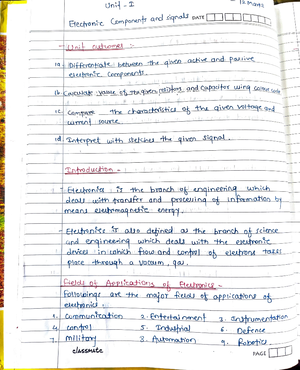 Unit - I
12 Marks
Electronic Components and signals DATE
Unit outcomes :-
1a. Differentiate between the given active and passive
electronic components.
1b. Calculate value of the given resistors and capacitor using colour code
1c. Compare the characteristics of the given voltage and
current source.
1d. Interpret with sketches the given signal.
Introduction -
- Electronics is the branch of engineering which
deals with transfer and processing of information by
means electromagnetic energy.
- Electronics is also defined as the branch of science
and engineering which deals with the electronic
devices in which flow and control of electrons takes
place through a vacuum, gas.
Fields of Applications of Electronics -
Followings are the major fields of applications of
electronics :
1. Communication 2. Entertainment 3. Instrumentation
4. Control 5. Industrial 6. Defence
7. Military 8. Automation 9. Robotics
classmate
PAGE